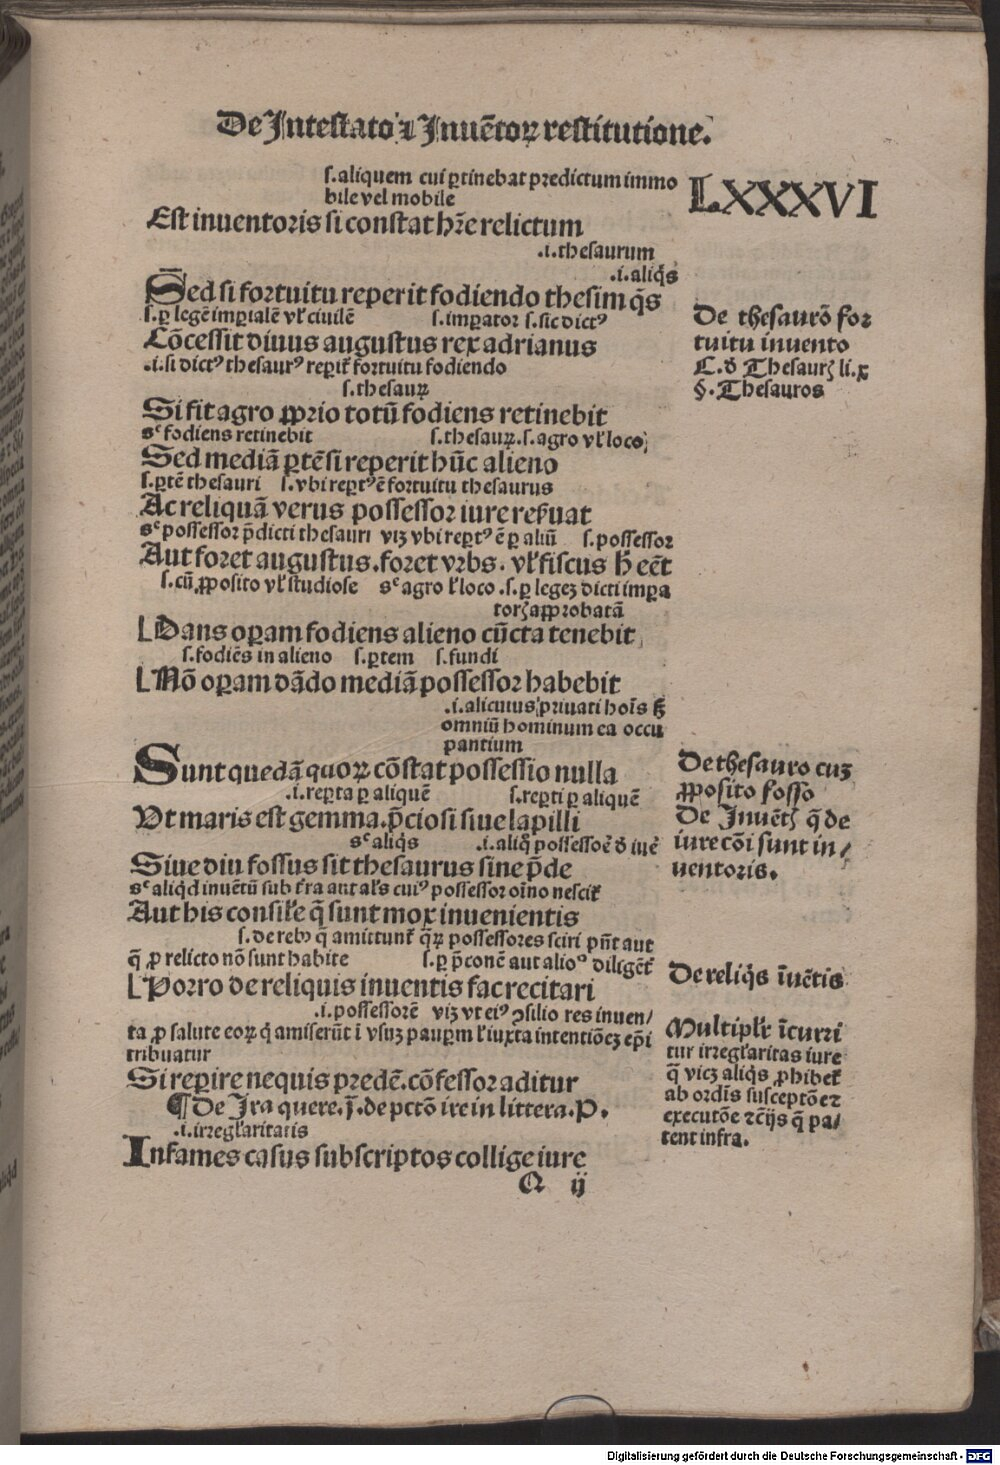 De Intestato ⁊ Inuētoꝝ restitutione.
LXXXVI
s.aliquem cui ꝑtinebat predictum immo
bile vel mobile
Est inuentoris si constat hr̄e relictum
.i.thesaurum
.i.aliq̄s
Sed si fortuitu reperit fodiendo thesim q̄s
s.ꝑ legē imꝑialē vƚ ciuilē s.imperator s.sic dictꝰ
Cōcessit diuus augustus rex adrianus
.i.si dictꝰ thesaurꝰ reꝑit᷑ fortuitu fodiendo
s.thesauꝝ
Si fit agro ꝓprio totū fodiens retinebit
sᶜ fodiens retinebit s.thesauꝝ.s.agro vƚ loco
Sed mediā ꝑtē si reperit hūc alieno
s.ꝑtē thesauri s.vbi reꝑtꝰ ē fortuitu thesaurus
Ac reliquā verus possessor iure reseruat
sᶜ possessor p̄dicti thesauri viꝫ vbi reꝑtꝰ ē ꝑ aliū s.possessor
Aut foret augustus.foret vrbs. vƚ fiscus h̄ eēt
s.cū ꝓposito vƚ studiose sᶜ agro ƚ loco .s.ꝑ legeꝫ dicti imꝑa
torꝭ approbatā
Dans oꝑam fodiens alieno cūcta tenebit
s.fodiēs in alieno s.ꝑtem s.fundi
Nō oꝑam dādo mediā possessor habebit
.i.alicuius priuati hoīs ſꝫ
omniū hominum ea occu
pantium
Sunt quedā quoꝝ cōstat possessio nulla
.i.reꝑta ꝑ aliquē s.reꝑti ꝑ aliquē
Vt maris est gemma.p̄ciosi siue lapilli
sᶜ aliq̄s .i.aliq̄ possessoē d̄ iuē
Siue diu fossus sit thesaurus sine p̄de
sᶜ aliq̄d inuētū sub t̄ra aut aƚs cuiꝰ possessor oīno nescit᷑
Aut his consiƚe q̄ sunt mox inuenientis
s.de rebꝰ q̄ amittunt᷑ q̄ꝝ possessores sciri pn̄t aut
q̄ ꝓ relicto nō sunt habite s.ꝑ p̄conē aut alioꝰ diligēt᷑
Porro de reliquis inuentis fac recitari
.i.possessorē viꝫ vt eiꝰ ꝯsilio res inuen/
ta ꝓ salute eoꝝ q̄ amiserūt ī vsuꝫ pauꝑm ƚ iuxta intentiōeꝫ ep̄i
tribuatur
Si reperire nequis predē.cōfessor aditur
¶ De Ira quere.j̄.de pctō ire in littera.P.
.i.irregƚaritatis
Infames casus subscriptos collige iure
Q ij
De thesaurō for
tuitu inuento
C.d̄ Thesaurꝭ li.x
§.Thesauros
De thesauro cuꝫ
ꝓposito fosso
De Inuētꝭ q̄ de
iure cōi sunt in/
uentoris.
De reliq̄s īuētis
Multipƚr īcurri
tur irregƚaritas iure
q̄ viꝫ aliq̄s ꝓhibet᷑
ab ordīs susceptōe ⁊
executōe ⁊cījs q̄ pa/
tent infra.
Digitalisierung gefördert durch die Deutsche Forschungsgemeinschaft - DFG